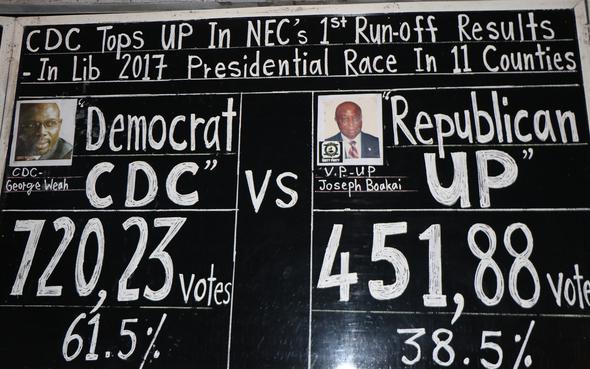 CDC Tops UP In NEC's 1st Run-off Results
- In Lib 2017 Presidential Race In 11 Counties
"Democrat
CDC"
CDC-
George Weah
VS
"Republican
UP"
V.P.-UP
Joseph Boakai
720,23 votes
61.5%
451,88 vote
38.5%